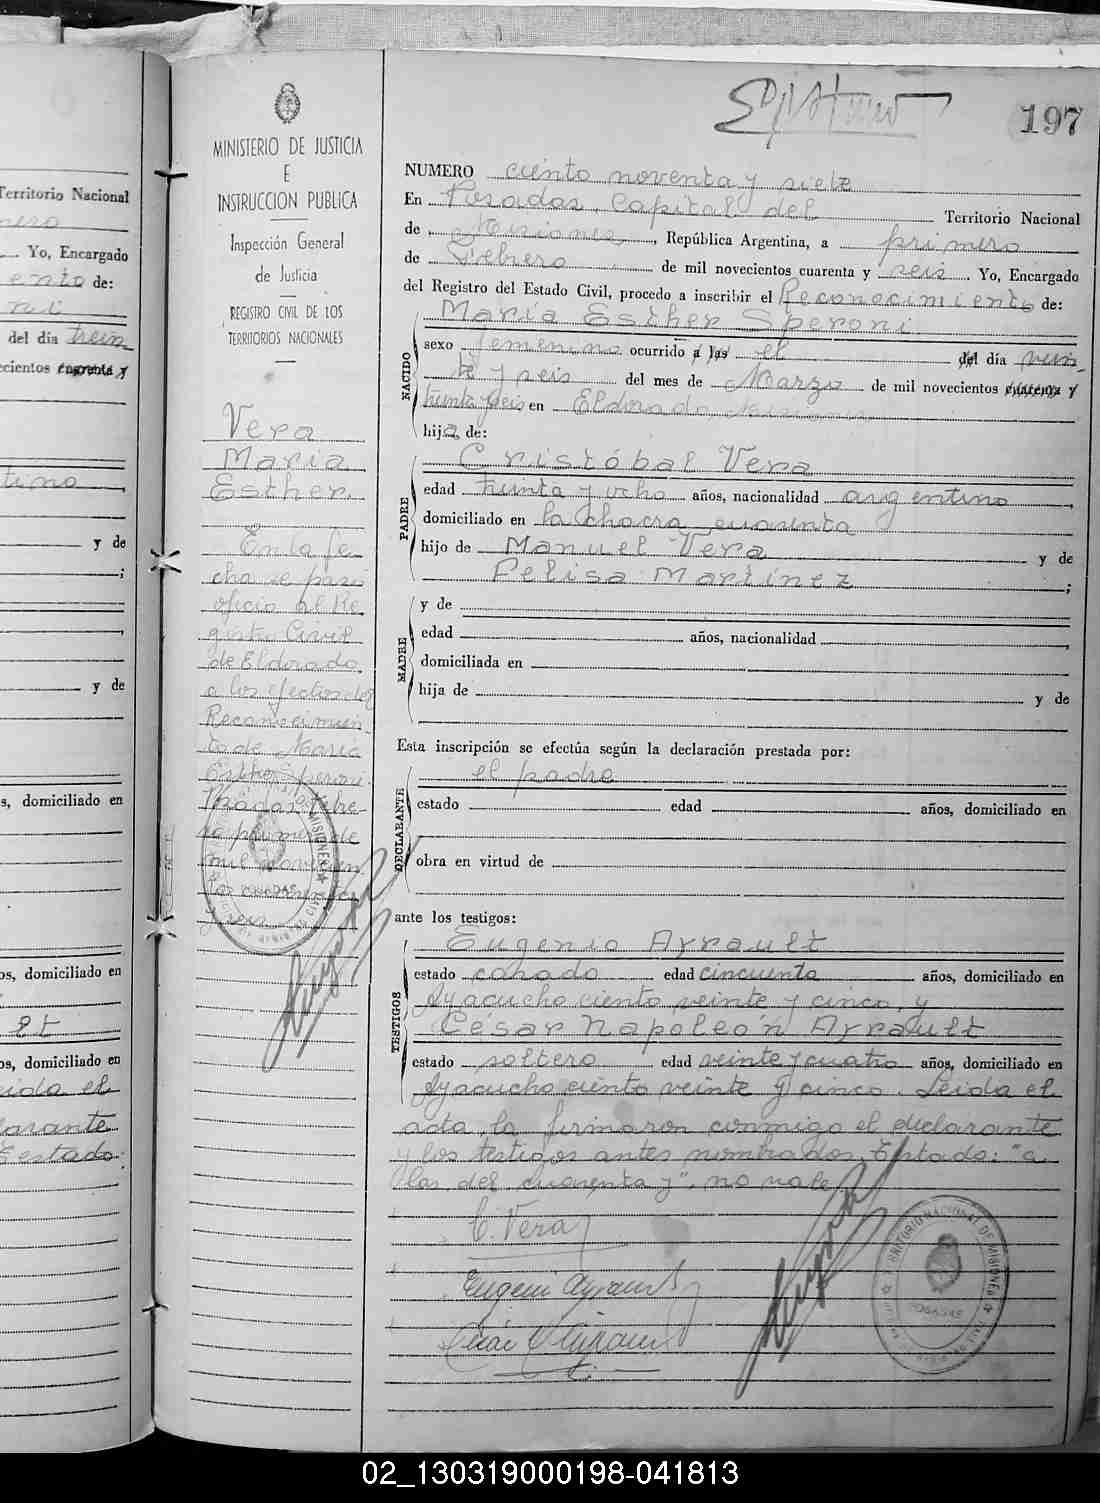 197
MINISTERIO DE JUSTICIA
E
INSTRUCCION PUBLICA
Inspección General
de Justicia
REGISTRO CIVIL DE LOS
TERRITORIOS NACIONALES
Vera
Maria
Esther
En la fe
cha se paso
oficio al Re
gistro Civil
de Eldorado
a los efectos del
Reconocimien
to de Maria
Esther Speroni
Posadas, Febre-
ro primero de
mil novecien
tos cuarenta
y seis
NUMERO ciento noventa y siete
En Posadas, Capital del Territorio Nacional
de Misiones, República Argentina, a primero
de Febrero de mil novecientos cuarenta y seis. Yo, Encargado
del Registro del Estado Civil, procedo a inscribir el Reconocimiento de:
María Esther Speroni
NACIDO
sexo femenino ocurrido a las el del día vein
te y seis del mes de Marzo de mil novecientos cuarenta y
treinta y seis en Eldorado, Misiones
hija de:
PADRE
Cristóbal Vera
edad treinta y ocho años, nacionalidad argentino,
domiciliado en la chacra cuarenta
hijo de Manuel Vera y de
Felisa Martínez;
MADRE
y de
edad años, nacionalidad,
domiciliada en
hija de y de
Esta inscripción se efectúa según la declaración prestada por:
DECLARANTE
el padre
estado edad años, domiciliado en
obra en virtud de
ante los testigos:
TESTIGOS
Eugenio Ayrault
estado casado edad cincuenta años, domiciliado en
Ayacucho ciento veinte y cinco, y
César Napoleón Ayrault
estado soltero edad veinte y cuatro años, domiciliado en
Ayacucho ciento veinte y cinco. Leída el
acta, la firmaron conmigo el declarante
y los testigos antes nombrados. Estado: "a
las, del cuarenta y", no vale
C. Vera
Eugenio Ayrault
TERRITORIO NACIONAL DE MISIONES
POSADAS
Territorio Nacional
Yo, Encargado
de:
del día trein
cientos cuarenta y
y de
;
y de
domiciliado en
os, domiciliado en
os, domiciliado en
eida el
larante
Estado:
02_130319000198-041813